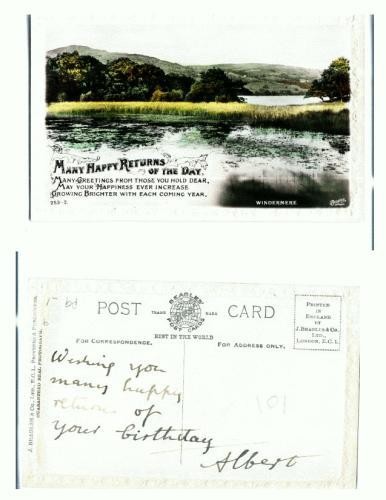 MANY HAPPY RETURNS
OF THE DAY.
MANY GREETINGS FROM THOSE YOU HOLD DEAR,
MAY YOUR HAPPINESS EVER INCREASE
GROWING BRIGHTER WITH EACH COMING YEAR.
253-2.
WINDERMERE
POST CARD
BEAGLES
POST CARDS
TRADE MARK
BEST IN THE WORLD
FOR CORRESPONDENCE.
FOR ADDRESS ONLY.
PRINTED
IN ENGLAND
BY
J. BEAGLES & CO.
LTD.
LONDON, E.C.1.
Wishing you
many happy
returns of
your birthday
Albert
101